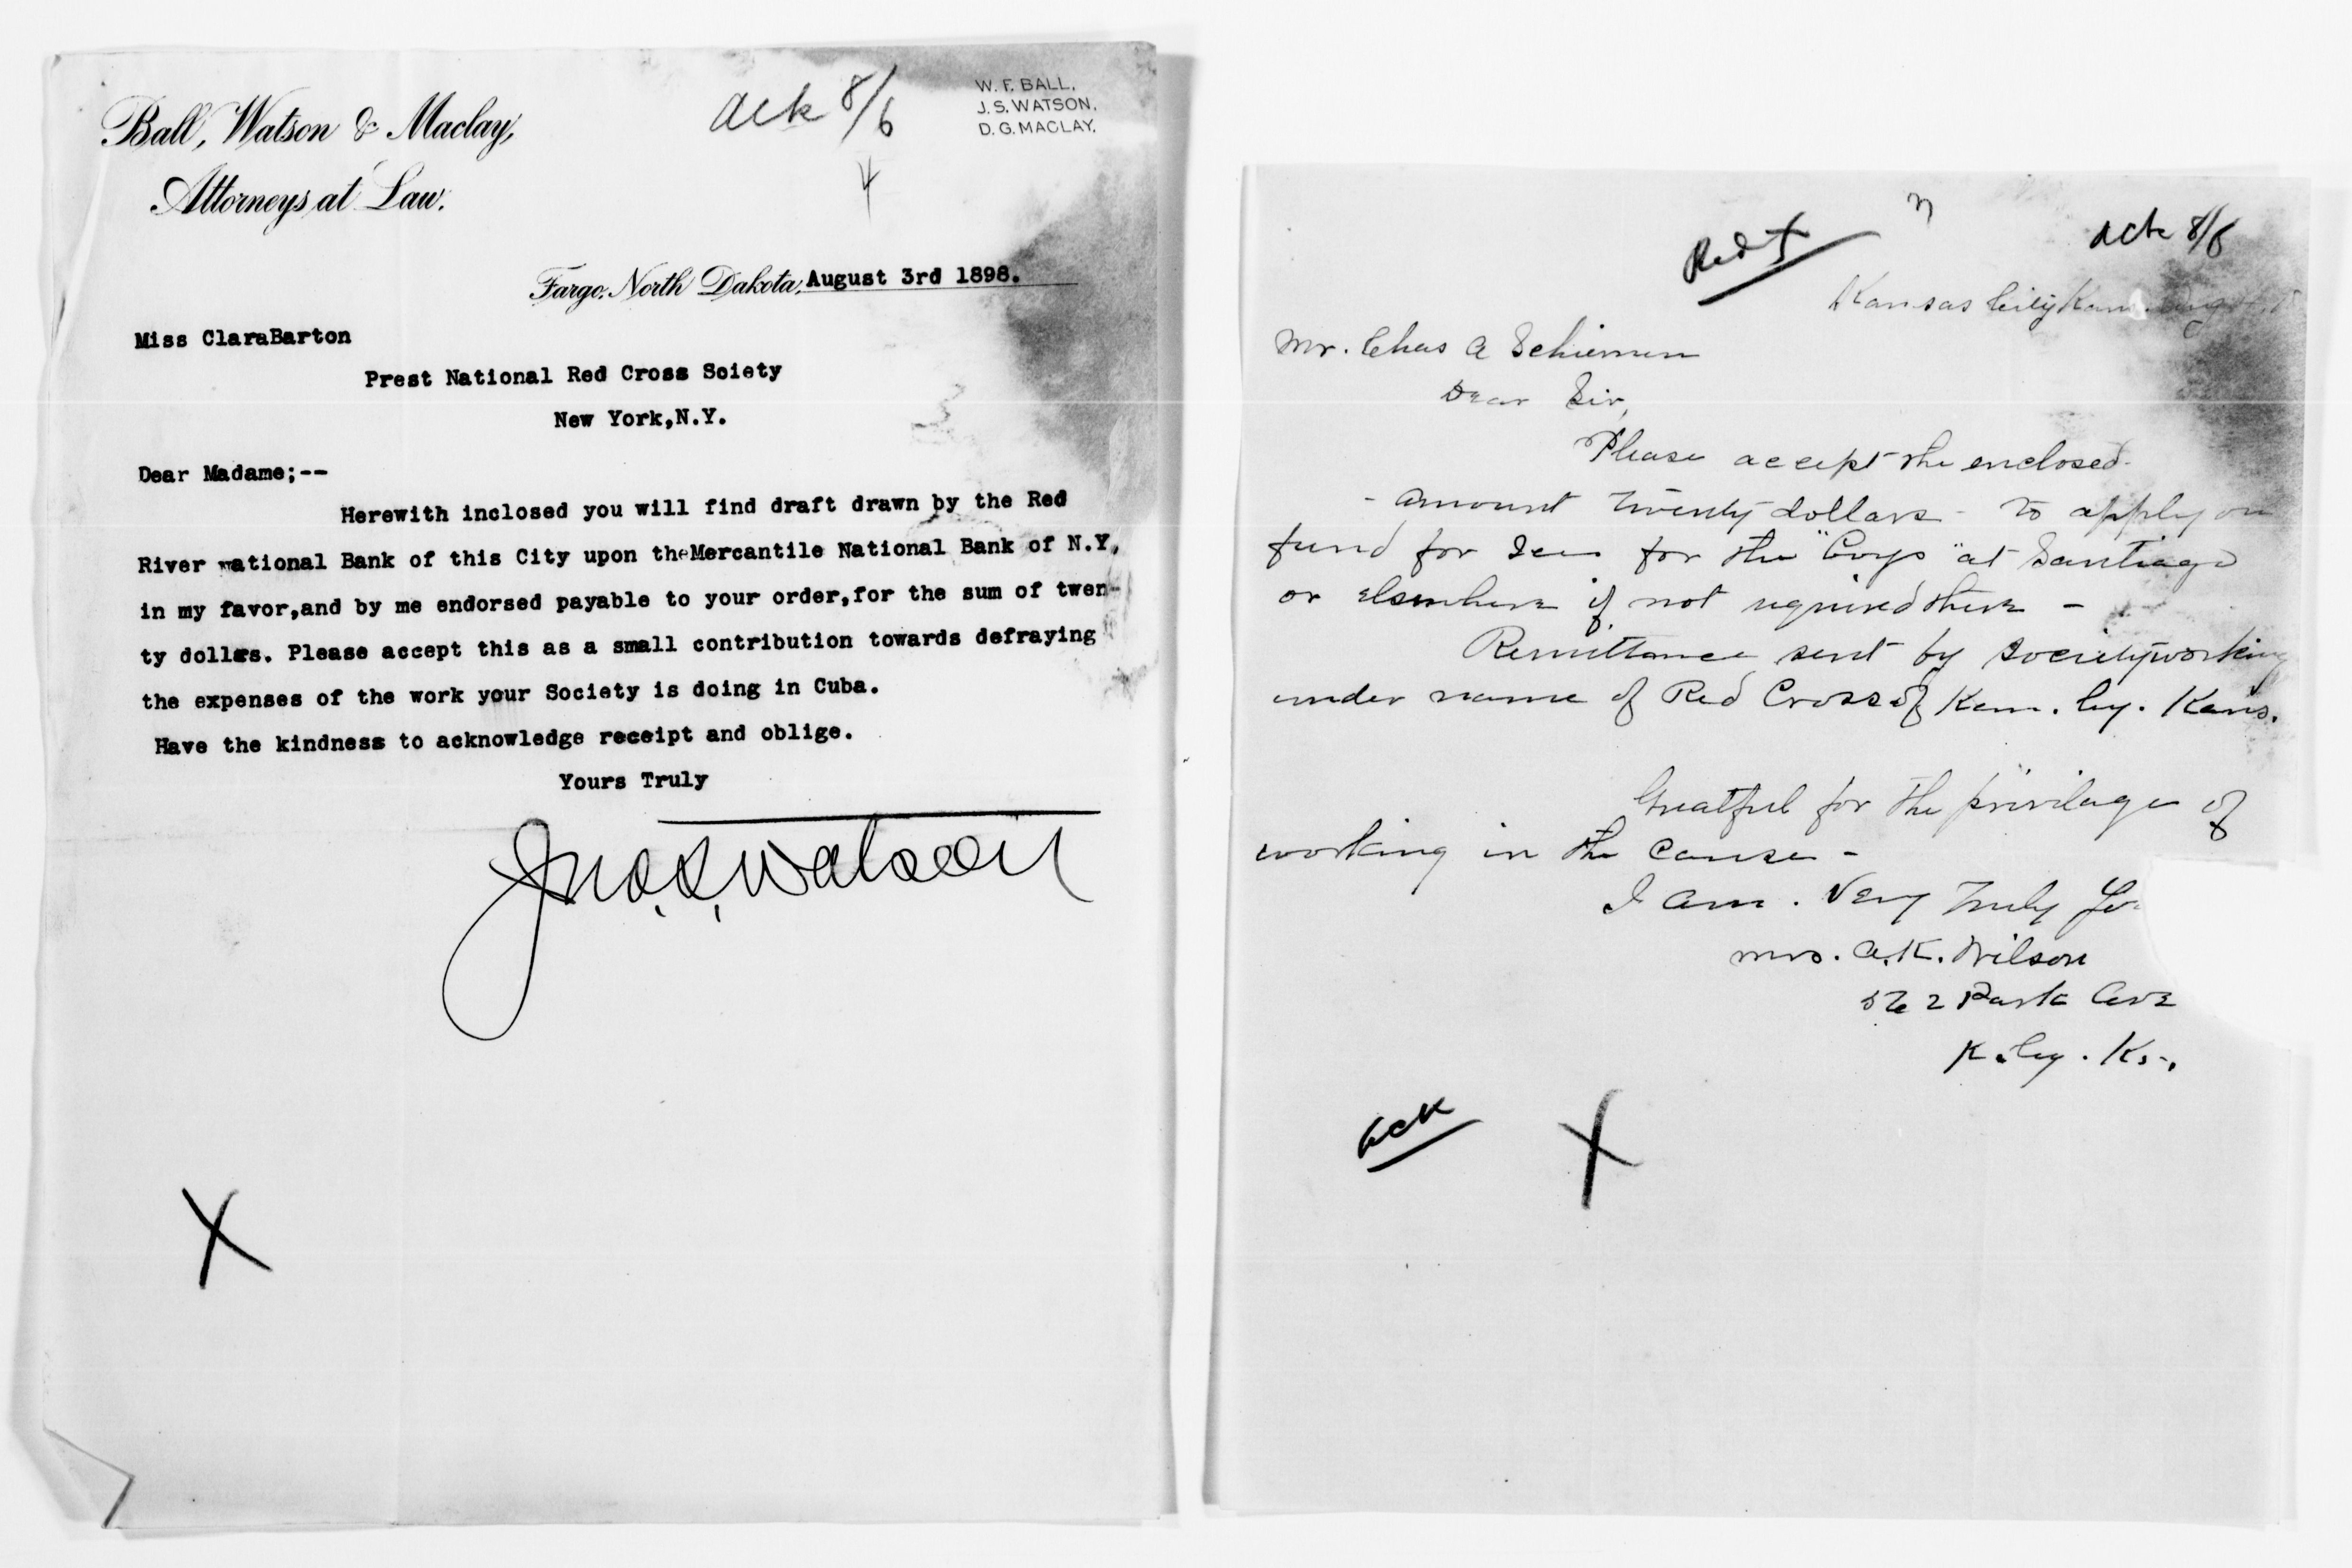 Ball, Watson & Maclay,
Attorneys at Law.
Ack 8/6
4
W. F. BALL,
J. S. WATSON,
D. G. MACLAY.
Fargo, North Dakota, August 3rd 1898.
Miss ClaraBarton
Prest National Red Cross Soiety
New York,N.Y.
Dear Madame;--
Herewith inclosed you will find draft drawn by the Red
River National Bank of this City upon theMercantile National Bank of N.Y,
in my favor,and by me endorsed payable to your order,for the sum of twen-
ty dollars. Please accept this as a small contribution towards defraying
the expenses of the work your Society is doing in Cuba.
Have the kindness to acknowledge receipt and oblige.
Yours Truly
Jno. S. Watson
X
Red +
Ack 8/6
Kansas City Kans. Aug
Mr. Chas A Schieren
Dear Sir,
Please accept the enclosed-
- amount twenty dollars - to apply on
fund for Ice for the "Boys" at Santiago
or elsewhere if not required there -
Remittance sent by society working
under name of Red Cross of Kan. Cy. Kans.
Greatful for the privilage of
working in the cause -
I am. Very Truly Yo
Mrs. A. K. Wilson
Park Ave
K. Cy. Ks.
Ack
X